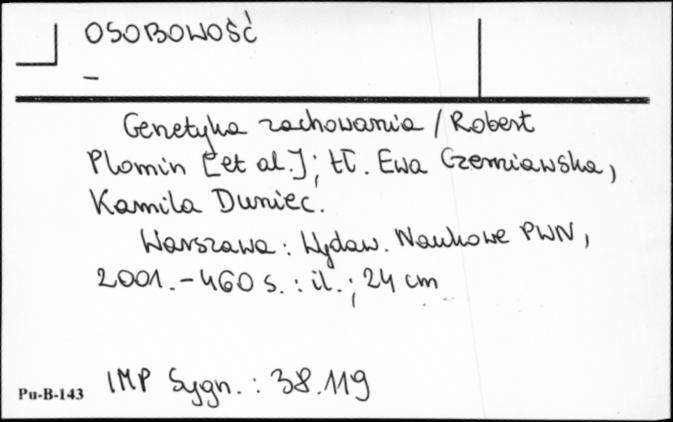 OSOBOWOŚĆ
–
Genetyka zachowania / Robert
Plomin [et al.]; tł. Ewa Czerniawska,
Kamila Duniec.
Warszawa : Wydaw. Naukowe PWN,
2001. – 460 s. : il. ; 24 cm
IMP Sygn. : 38.119
Pu-B-143